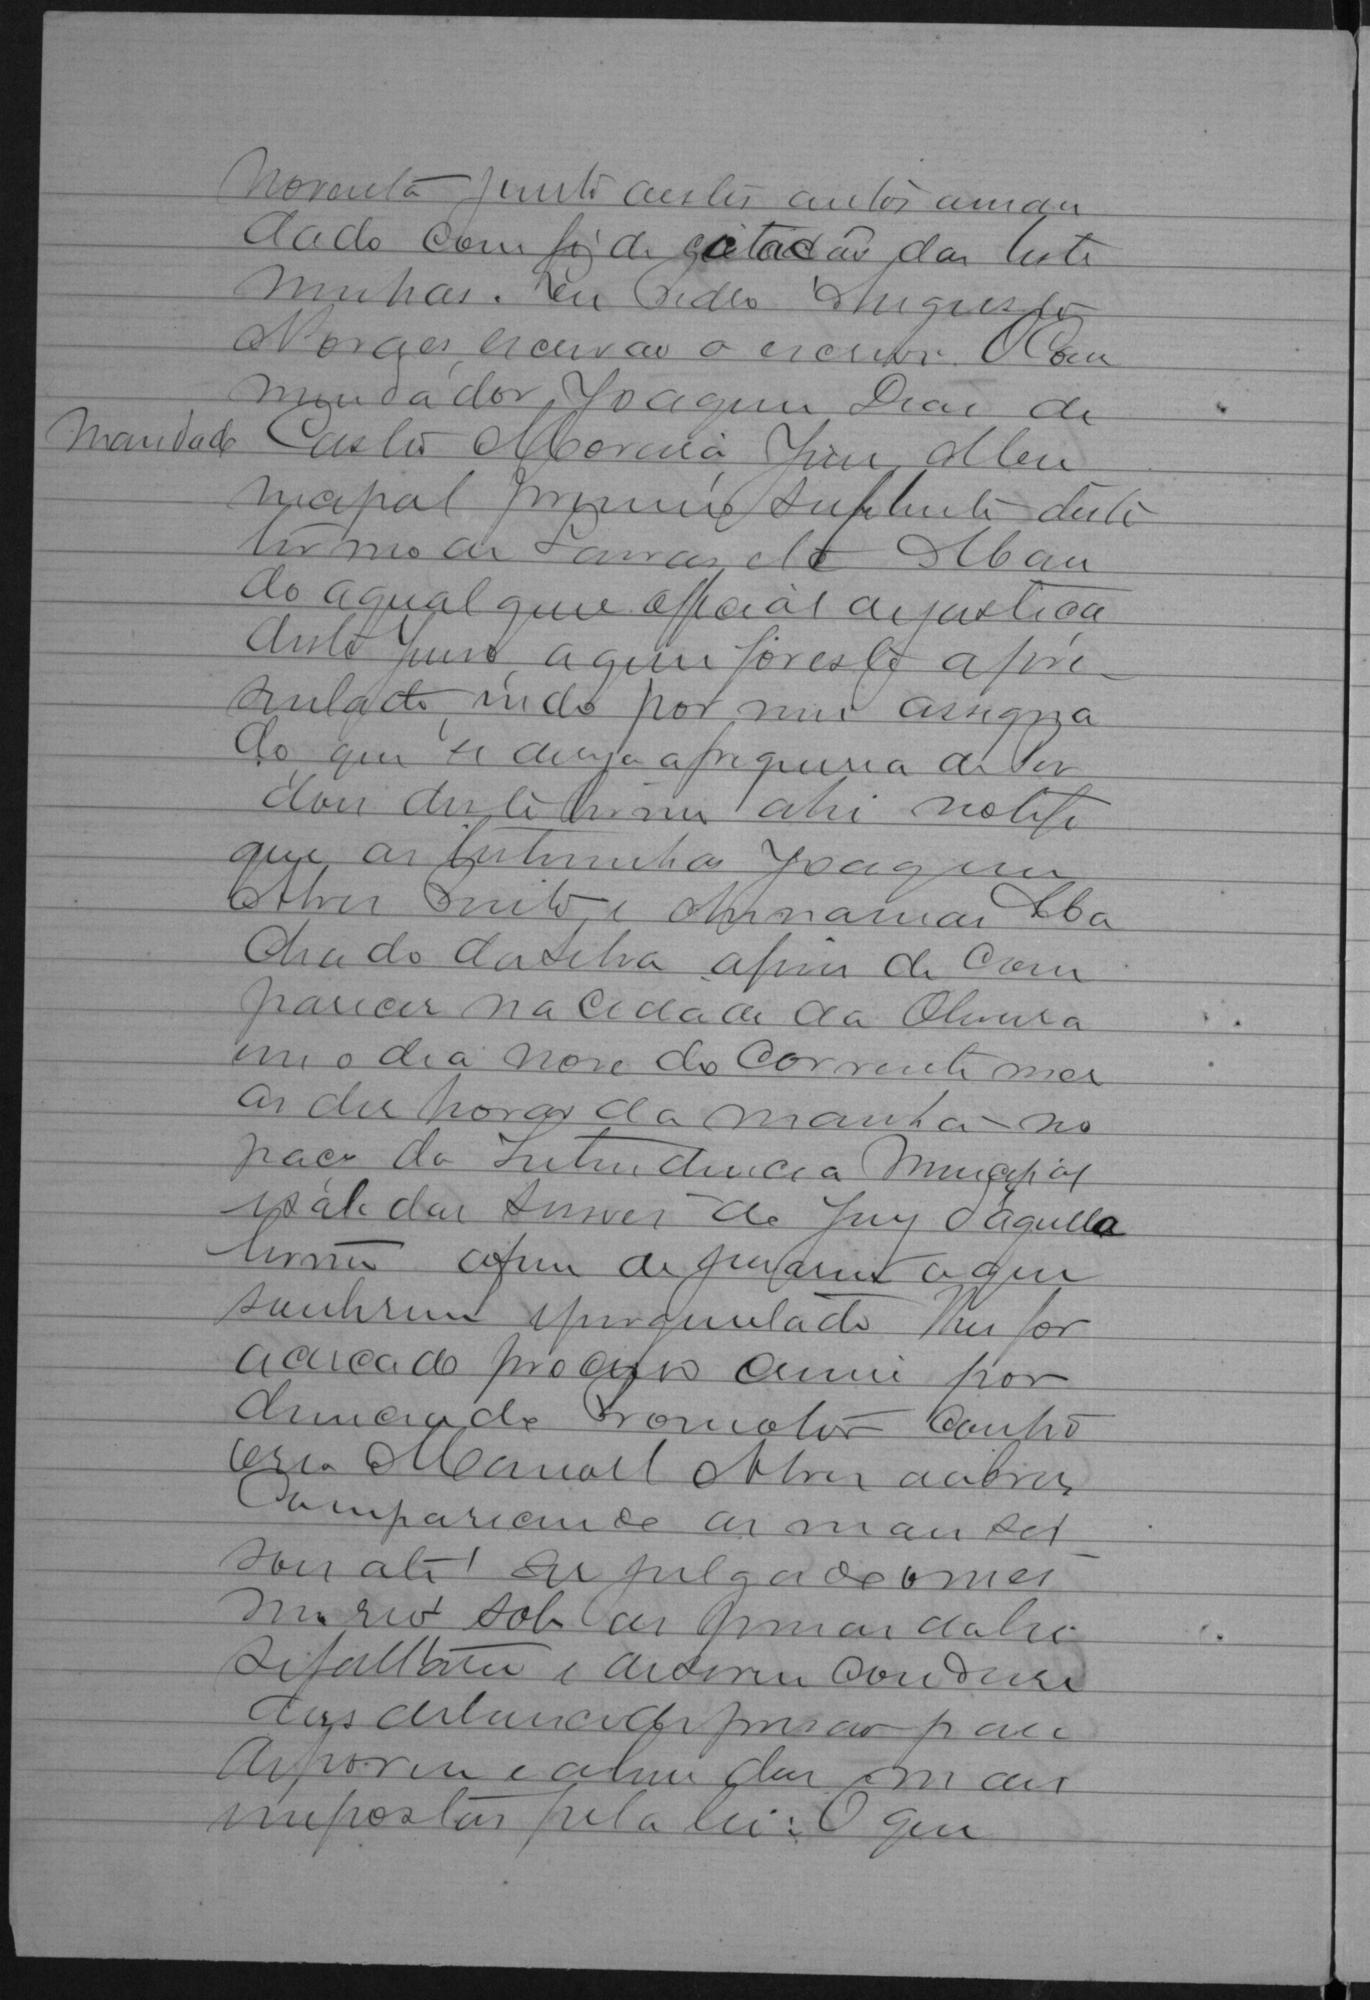 noventa junto aestes autos aman
dado com fé de citação das teste
munhas. Eu Pedro Augusto
Borges, escrivão o escrevi. O Com
mendador Joaquim Dias de
Mandado
Castro Moreira Juiz Mu
nicipal primeiro suplente deste
termo de Lavras etc Man
do aqualquer official dejustiça
deste Juiso, aquem foreste apre
sentado, indo por mim assigna
do que se dirija afreguesia de Per
dões deste termo ahi notifi
que as testemunhas Joaquim
Alves Brito e Ananias Ma
chado daSilva afim de com
parecer na Cidade da Oliveira
em o dia nove do corrente mes
as des horas da manhã no
paço da Intendencia Municipal
esála das de Juiz d'aquelle
termo afim de jurarem o que
souberem eperguntado lhes for
acerca do processo crime por
denuncia do Promotor contra
Manoel Alves
Comparecendo as mais ses
sões até ser julgado omes
mo reo sob as penas dalei
sefaltarem e deserem condusi
das debaixo de prisão para
deporem e alem das mais
impostas pela lei. O que